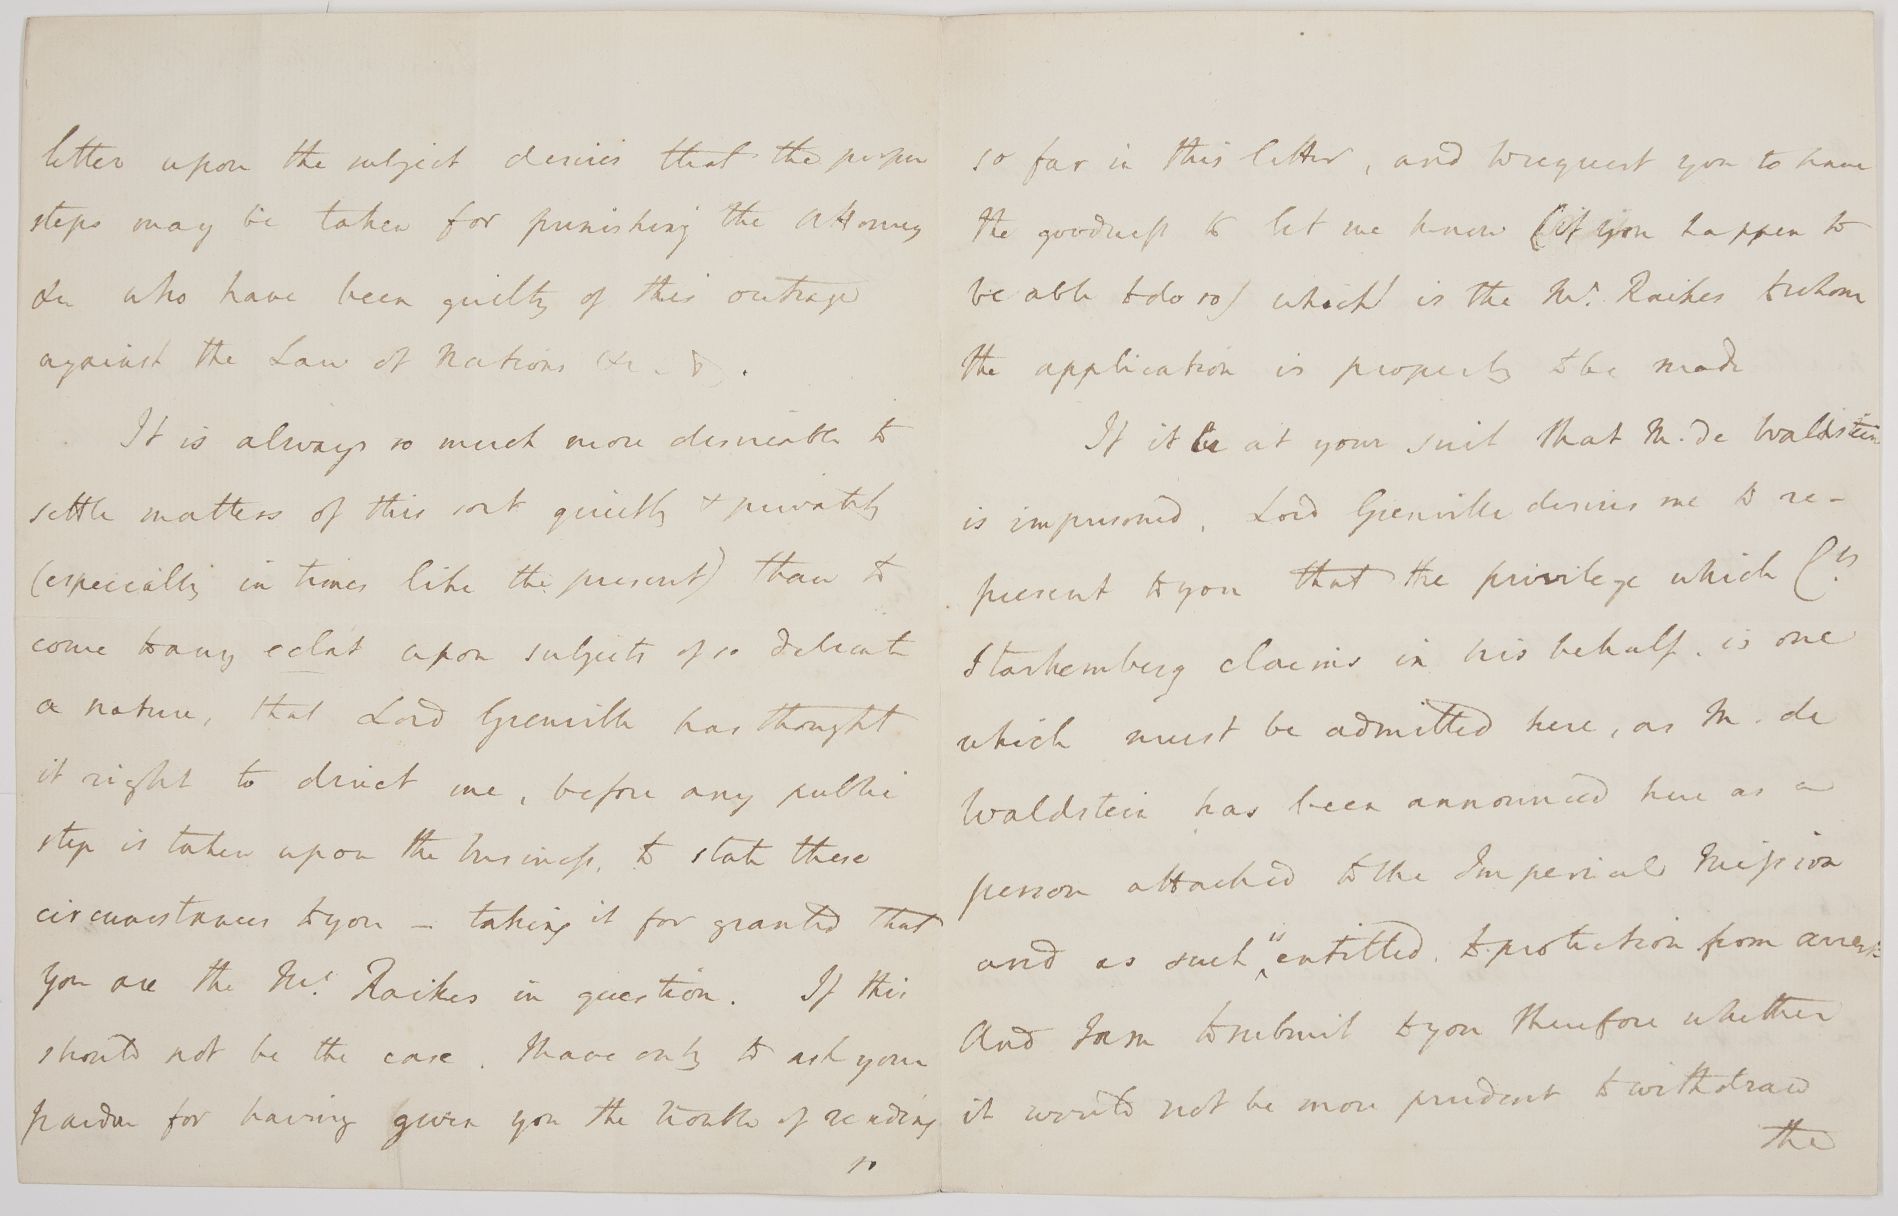 letter upon the subject desires that the proper
steps may be taken for punishing the Attorney
&c who have been guilty of this outrage
against the Law of Nations &c
It is always so much more desireable to
settle matters of this sort quietly & privately
(especially in times like the present) than to
come to any eclat upon subjects of so delicate
a nature, that Lord Grenville has thought
it right to direct me, before any public
step is taken upon the business, to state these
circumstances to you — taking it for granted that
you are the Mr. Raikes in question. If this
should not be the case. I have only to ask your
pardon for having given you the trouble of reading
so
so far in this letter, and to request you to have
the goodness to let me know (if you happen to
be able to do so) which is the Mr. Raikes to whom
the application is properly to be made
If it be at your suit that M. de Waldstein
is imprisoned. Lord Grenville desires me to re-
present to you that the privilege which Ct.
Starhemberg claims in his behalf. is one
which must be admitted here, as M. de
Waldstein has been announced here as a
person attached to the Imperial Mission
and as such is entitled to protection from arrest.
And I am to submit to you therefore whether
it would not be more prudent to withdraw
the